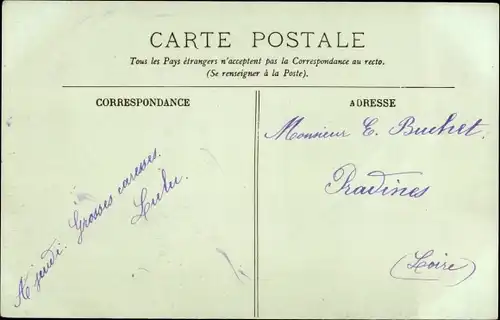 CARTE POSTALE
Tous les Pays étrangers n'acceptent pas la Correspondance au recto.
(Se renseigner à la Poste).
CORRESPONDANCE
A jeudi. Grosses caresses.
Lulu.
ADRESSE
Monsieur E. Buchet.
Pradines
(Loire)